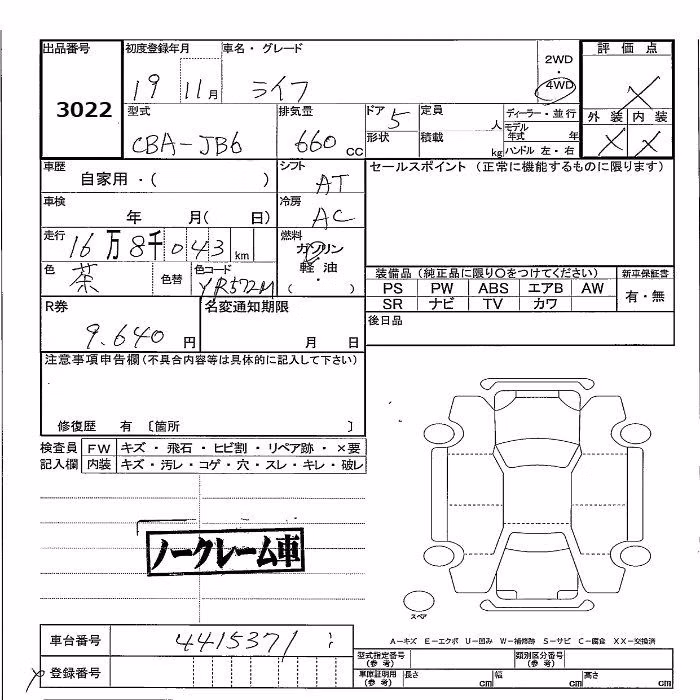 出品番号 初度登録年月 車名・グレード 2WD ・ 4WD 評価点
3022 19 11月 ライフ X
型式 排気量 ドア 5 定員 人 ディーラー・並行 外装 内装
CBA-JB6 660 CC 形状 積載 kg モデル年式 年 X X
ハンドル 左・右
車歴 シフト セールスポイント (正常に機能するものに限ります)
自家用・( ) AT
車検 冷房
年 月( 日) AC
走行 燃料
16万8千043 km ガソリン
色 茶 色替 色コード YR572M 軽油 ・ ( )
装備品 (純正品に限り〇をつけてください) 新車保証書
PS PW ABS エアB AW 有・無
SR ナビ TV カワ
R券 名変通知期限 後日品
9.640 円 月 日
注意事項申告欄(不具合内容等は具体的に記入して下さい)
修復歴 有 〔箇所 〕
検査員 FW キズ・飛石・ヒビ割・リペア跡・×要
記入欄 内装 キズ・汚レ・コゲ・穴・スレ・キレ・破レ
ノークレーム車
スペア
A-キズ E-エクボ U-凹み W-補修跡 S-サビ C-腐食 XX-交換済
車台番号 4415371
登録番号
型式指定番号 (参考) 類別区分番号 (参考)
車庫証明用 (参考) 長さ cm 幅 cm 高さ cm